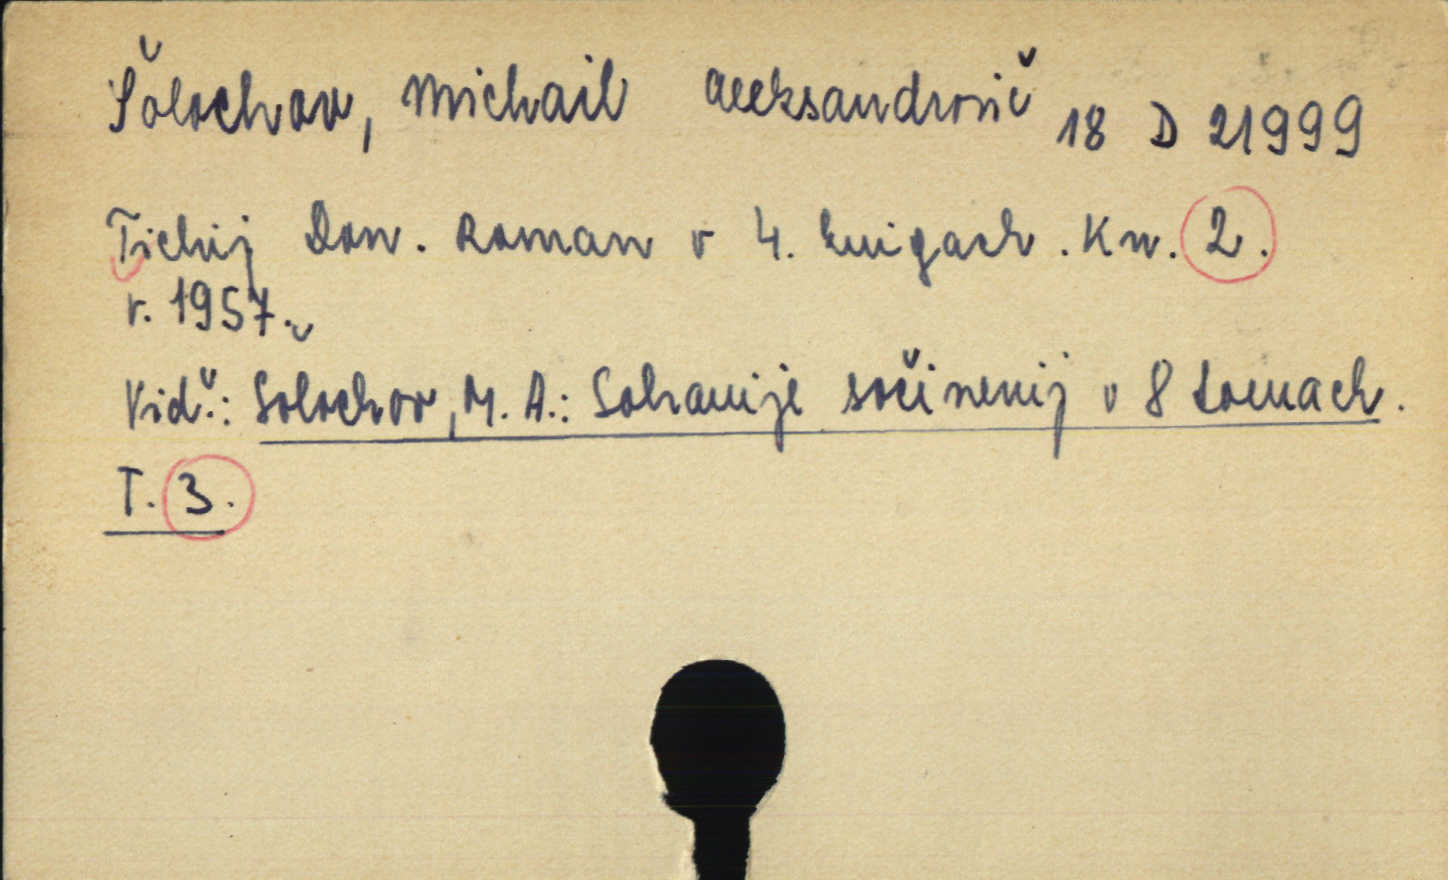 Šolochov, Michail Aleksandrovič 18 D 21999
Tichij Don. Roman v 4. knigach. Kn. 2.
r. 1957.
Viď.: Šolochov, M. A.: Sobranije sočinenij v 8 tomach.
T. 3.